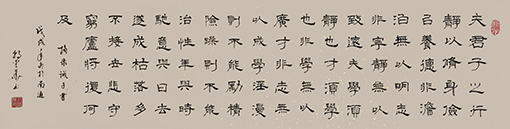 夫君子之行
靜以脩身儉
以養德非澹
泊無以明志
非寧靜無以
致遠夫學須
靜也才須學
也非學無以
廣才非志無
以成學淫漫
則不能勵精
險躁則不能
治性年與時
馳意與日去
遂成枯落多
不接世悲守
窮廬將復何
及
誡子書
戊戌年 於南通